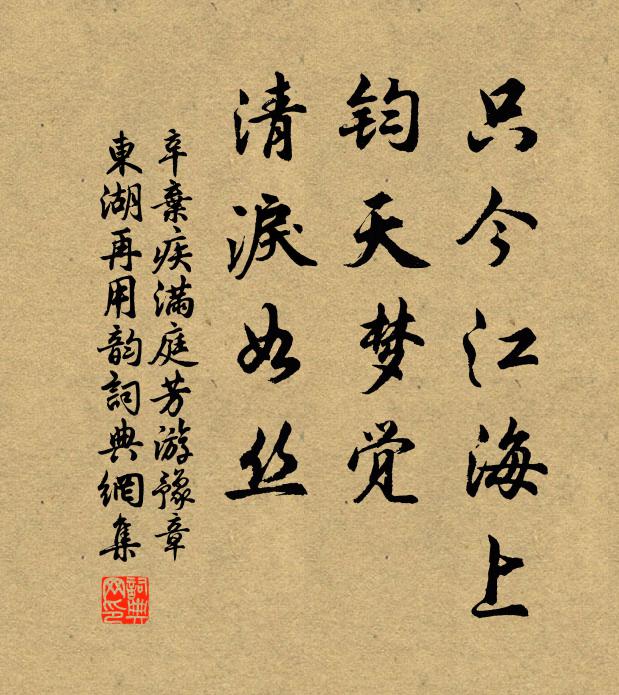 只今江海上
钧天梦觉
清淚如丝
辛棄疾满庭芳游豫章
東湖再用韵詞典網集
詞典网印